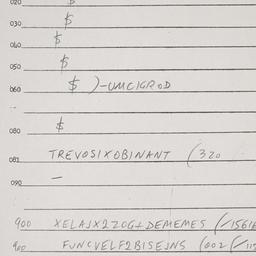 020 $
030 $
040 $
050 $
060 $ )-UMCIGROD
080 $
081 TREVOSIXOBINANT (320
090 —
900 XELAJX2ZOG+DEMEMES (/1561
900 FUNCVELF2BISEJNS (002 (/115